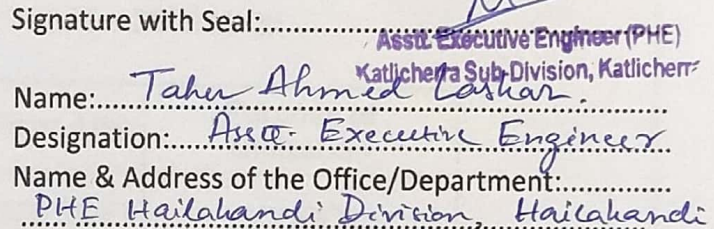 Signature with Seal:.............................
Asstt. Executive Engineer (PHE)
Katlicherra Sub-Division, Katlicherr
Name:.....Taher Ahmed Laskar.
Designation:.....Asstt. Executive Engineer
Name & Address of the Office/Department:..............
PHE Hailakandi Division, Hailakandi